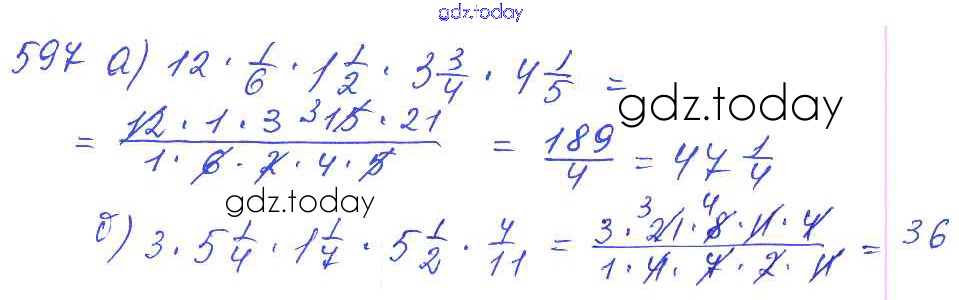 gdz.today
597 а) 12 · 1/6 · 1 1/2 · 3 3/4 · 4 1/5 =
gdz.today
= (12 · 1 · 3 ³15 · 21)/(1 · 6 · 2 · 4 · 5) = 189/4 = 47 1/4
gdz.today
б) 3 · 5 1/4 · 1 1/7 · 5 1/2 · 4/11 = (3 · ³21 · ⁴8 · 11 · 4)/(1 · 4 · 7 · 2 · 11) = 36